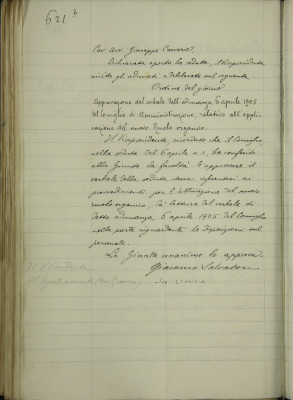 621 b
Cav. Avv. Giuseppe
Dichiarata aperta la seduta, il Vicepresidente
invita gli adunati a deliberare sul seguente
Ordine del giorno
Approvazione del verbale dell'adunanza 6 aprile 1905
del Consiglio di Amministrazione, relativo all'appli-
cazione del nuovo Ruolo organico.
Il Vicepresidente ricordato che il Consiglio
nella seduta del 6 aprile a. c., ha conferito
alla Giunta la facoltà d'approvare il
verbale della seduta stessa
provvedimenti per l'attuazione del nuovo
ruolo organico, dà lettura del verbale di
detta adunanza 6 aprile 1905 del Consiglio
nella parte riguardante le disposizioni sul
personale.
La Giunta unanime lo approva.
Giacomo Salvadori
Il V. Presidente
Il